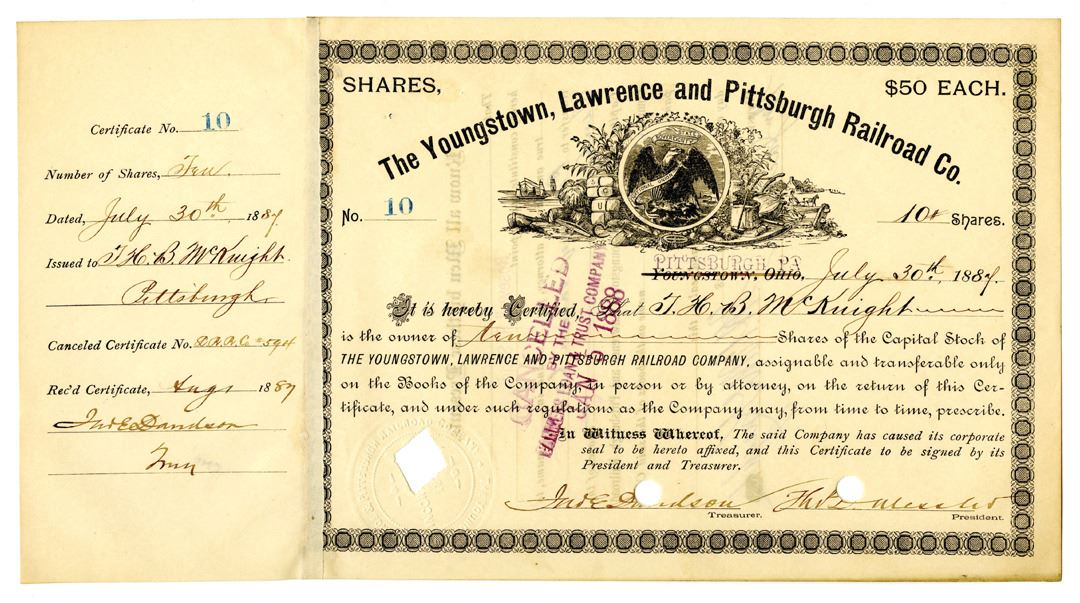 Certificate No. 10
Number of Shares, Ten.
Dated, July 30th, 1887.
Issued to T. H. B. McKnight.
Pittsburgh,
Canceled Certificate No.
Rec'd Certificate, Aug 1 1887
Treas
SHARES,
$50 EACH.
The Youngstown, Lawrence and Pittsburgh Railroad Co.
No. 10
10 Shares.
PITTSBURGH, PA
YOUNGSTOWN, OHIO, July 30th, 1887.
It is hereby Certified, That T. H. B. McKnight
is the owner of Ten Shares of the Capital Stock of
THE YOUNGSTOWN, LAWRENCE AND PITTSBURGH RAILROAD COMPANY, assignable and transferable only
on the Books of the Company, in person or by attorney, on the return of this Cer-
tificate, and under such regulations as the Company may, from time to time, prescribe.
In Witness Whereof, The said Company has caused its corporate
seal to be hereto affixed, and this Certificate to be signed by its
President and Treasurer.
Treasurer.
President.
CANCELLED
BY THE
TRUST COMPANY
JAN 1888